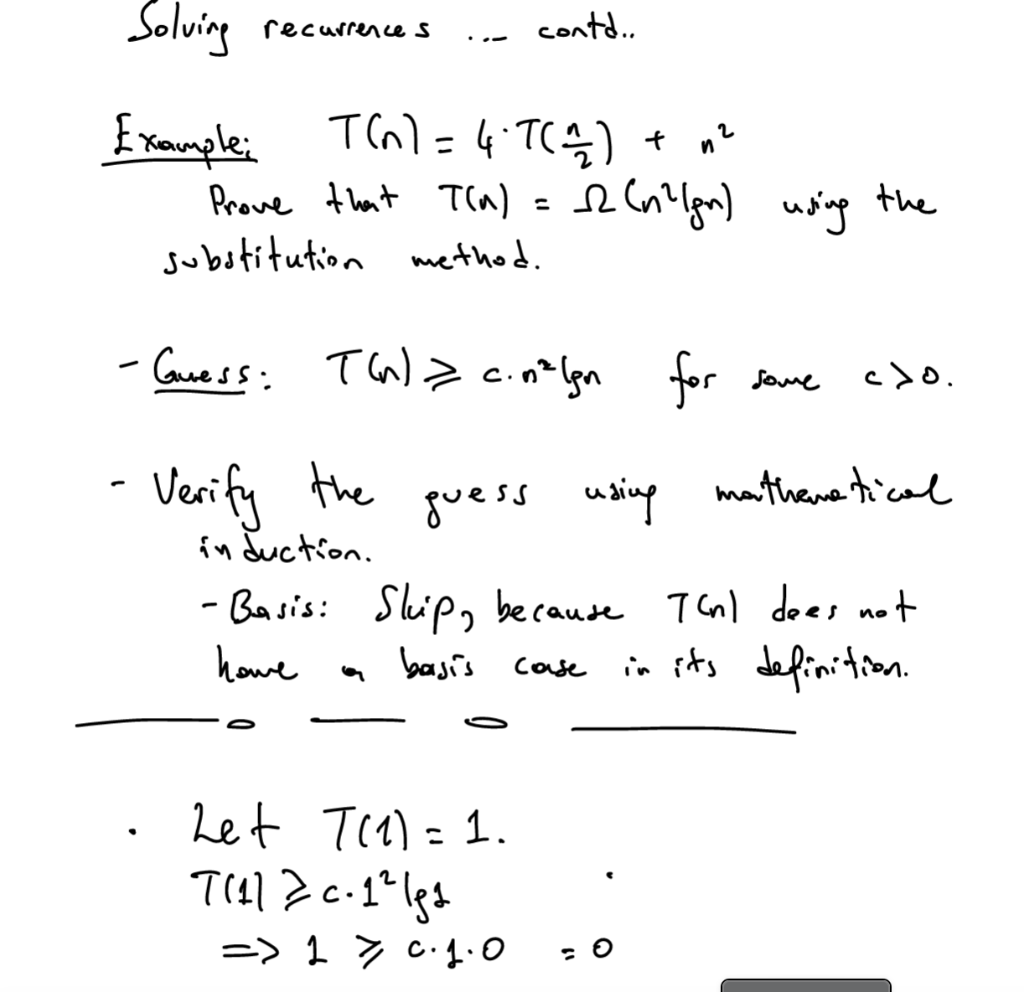 Solving recurrences ... contd..
Example: T(n) = 4·T(n/2) + n²
Prove that T(n) = Ω(n²lgn) using the
substitution method.
- Guess: T(n) ⩾ c.n²lgn for some c>0.
- Verify the guess using mathematical
induction.
- Basis: Skip, because T(n) does not
have a basis case in its definition.
· Let T(1) = 1.
T(1) ⩾ c.1²lg1
=> 1 ⩾ c.1.0 = 0